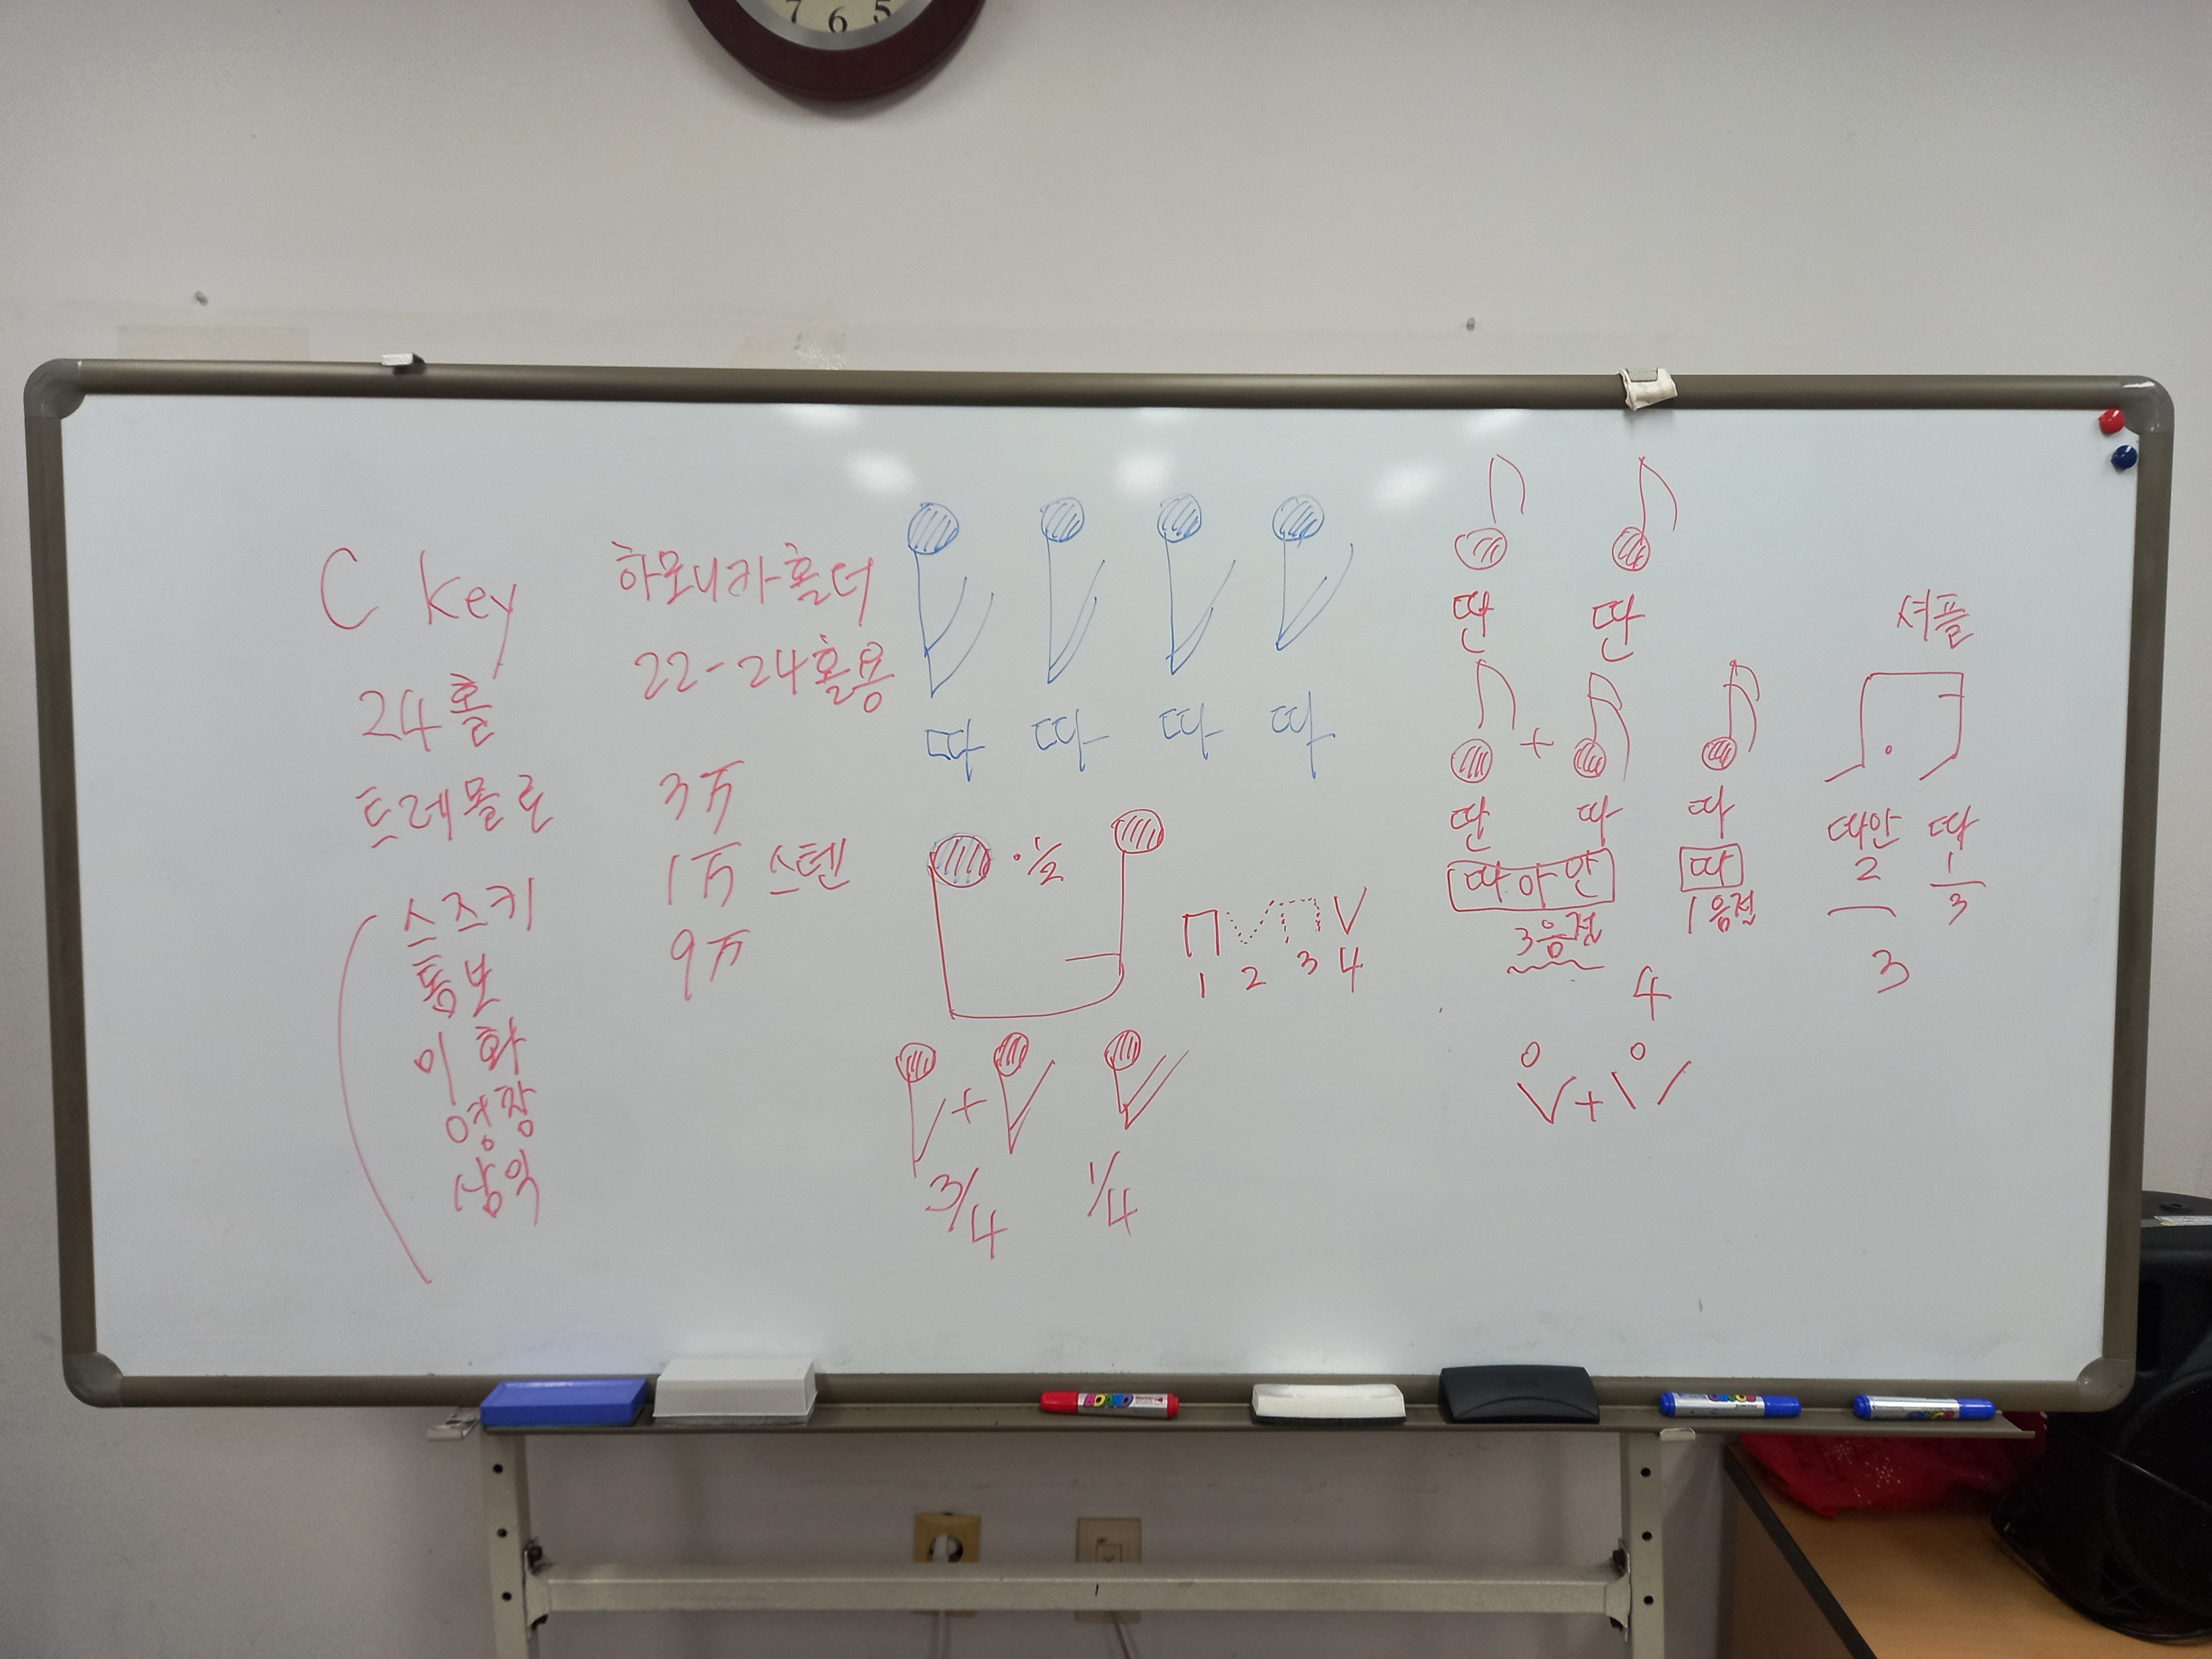 7 6 5
C Key
24홀
트레몰로
스즈키
통보
이화
영창
삼익
하모니카홀더
22-24홀용
3万
1万 스텐
9万
따 따 따 따
· 1/2
1 2 3 4
+
3/4 1/4
딴 딴
+
딴 따 따
따아안 따
3음절 1음절
4
+
셔플
따안 따
2 1
3 3